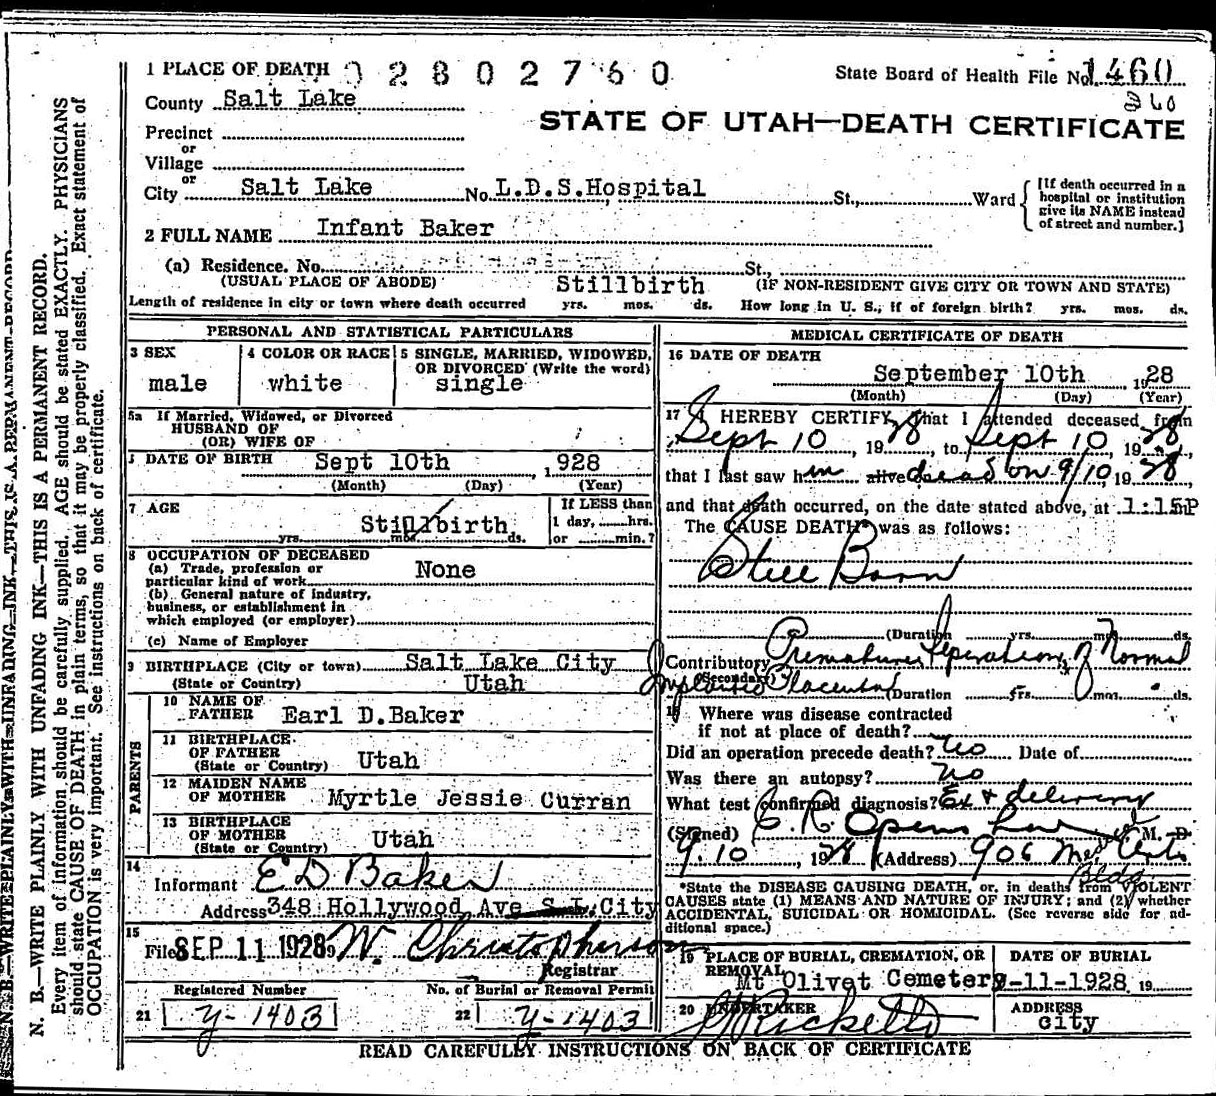 1 PLACE OF DEATH 02802760 State Board of Health File No. 1460
County Salt Lake 360
STATE OF UTAH—DEATH CERTIFICATE
Precinct
or
Village
or
City Salt Lake No. L.D.S.Hospital St., Ward [If death occurred in a hospital or institution give its NAME instead of street and number.]
2 FULL NAME Infant Baker
(a) Residence. No. St.,
(USUAL PLACE OF ABODE) Stillbirth (IF NON-RESIDENT GIVE CITY OR TOWN AND STATE)
Length of residence in city or town where death occurred yrs. mos. ds. How long in U. S., if of foreign birth? yrs. mos. ds.
PERSONAL AND STATISTICAL PARTICULARS
3 SEX 4 COLOR OR RACE 5 SINGLE, MARRIED, WIDOWED, OR DIVORCED (Write the word)
male white single
5a If Married, Widowed, or Divorced
HUSBAND OF
(OR) WIFE OF
DATE OF BIRTH Sept 10th , 1928
(Month) (Day) (Year)
7 AGE If LESS than
Stillbirth 1 day, hrs.
yrs. mos. ds. or min.?
8 OCCUPATION OF DECEASED
(a) Trade, profession or
particular kind of work None
(b) General nature of industry,
business, or establishment in
which employed (or employer)
(c) Name of Employer
9 BIRTHPLACE (City or town) Salt Lake City
(State or Country) Utah
PARENTS
10 NAME OF
FATHER Earl D.Baker
11 BIRTHPLACE
OF FATHER
(State or Country) Utah
12 MAIDEN NAME
OF MOTHER Myrtle Jessie Curran
13 BIRTHPLACE
OF MOTHER
(State or Country) Utah
14
Informant E D Baker
Address 348 Hollywood Ave S.L.City
15
Filed SEP 11 1928 W. Christopherson
Registrar
Registered Number No. of Burial or Removal Permit
21 y-1403 22 y-1403
MEDICAL CERTIFICATE OF DEATH
16 DATE OF DEATH
September 10th 1928
(Month) (Day) (Year)
17 I HEREBY CERTIFY, that I attended deceased from
Sept 10, 1928, to Sept 10, 1928,
that I last saw him alive dead on 9/10, 1928,
and that death occurred, on the date stated above, at 1:15P
The CAUSE DEATH* was as follows:
Still Born
(Duration yrs. mos. ds.
Contributory Premature Seperation of Normal
(Secondary)
Implanted Placenta (Duration yrs. mos. ds.
18 Where was disease contracted
if not at place of death?
Did an operation precede death? No Date of
Was there an autopsy? No
What test confirmed diagnosis? Ex + delivery
(Signed) C. R. Openshaw M. D.
9.10, 1928 (Address) 906 Med Arts
Bldg.
*State the DISEASE CAUSING DEATH, or, in deaths from VIOLENT
CAUSES state (1) MEANS AND NATURE OF INJURY; and (2) whether
ACCIDENTAL, SUICIDAL OR HOMICIDAL. (See reverse side for ad-
ditional space.)
19 PLACE OF BURIAL, CREMATION, OR REMOVAL DATE OF BURIAL
Mt Olivet Cemetery 9-11-1928 19
20 UNDERTAKER ADDRESS
Ricketts city
READ CAREFULLY INSTRUCTIONS ON BACK OF CERTIFICATE
N. B.—WRITE PLAINLY WITH UNFADING INK—THIS IS A PERMANENT RECORD
N. B.—WRITE PLAINLY WITH UNFADING INK—THIS IS A PERMANENT RECORD.
Every item of information should be carefully supplied. AGE should be stated EXACTLY. PHYSICIANS
should state CAUSE OF DEATH in plain terms, so that it may be properly classified. Exact statement of
OCCUPATION is very important. See instructions on back of certificate.